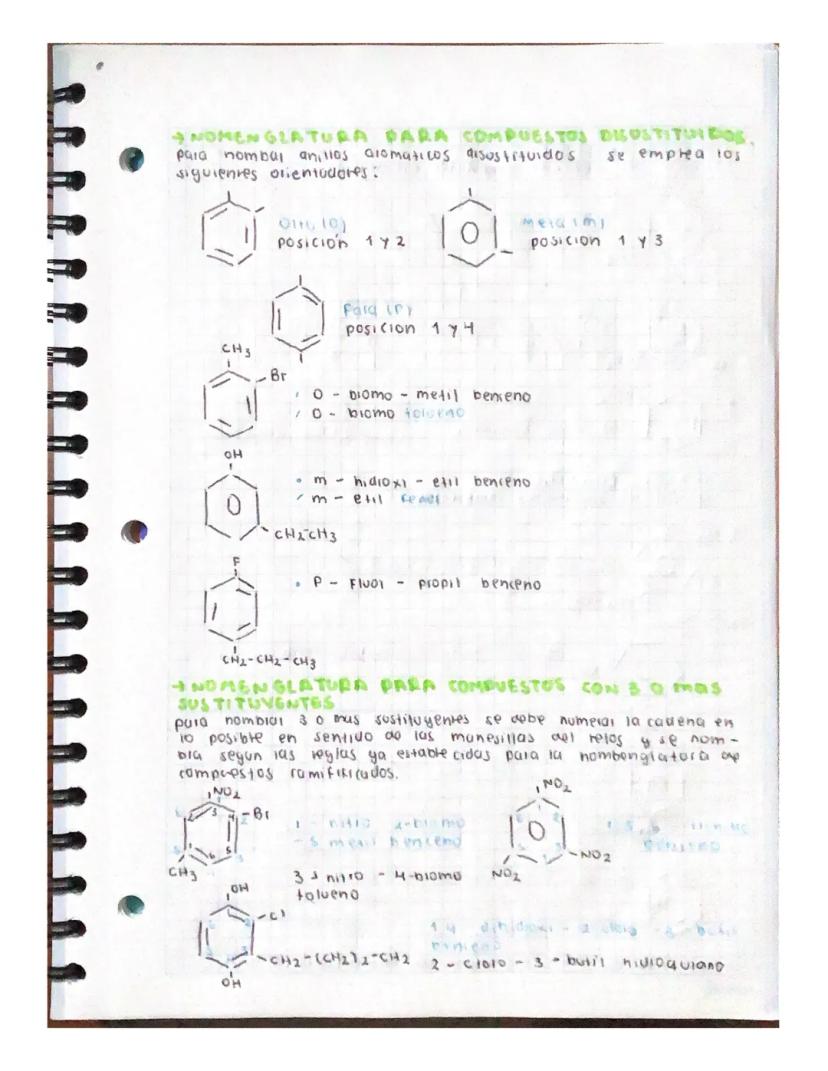 → NOMENGLATURA PARA COMPUESTOS DISUSTITUIDOS.
para nombrar anillos aromaticos disustituidos se emplea los
siguientes orientadores:
Orto (O)
posición 1 y 2
Meta (m)
posicion 1 y 3
Para (P)
posicion 1 y 4
CH3
Br
O - bromo - metil benceno
O - bromo tolueno
OH
m - hidroxi - etil benceno
m - etil fenol
CH2-CH3
F
P - Fluor - propil benceno
CH2-CH2-CH3
→ NOMENGLATURA PARA COMPUESTOS CON 3 O mas
SUSTITUYENTES
para nombrar 3 o mas sustituyentes se debe numerar la cadena en
lo posible en sentido de las manesillas del relog y se nom-
bra segun las reglas ya establecidas para la nombenglatura de
compuestos ramificados.
NO2
Br
CH3
1 - nitro 2-bromo
- 5 metil benceno
3 nitro - 4-bromo
tolueno
NO2
NO2
NO2
benceno
OH
Cl
CH2-(CH2)2-CH2
OH
1 4 dihidroxi - 2 cloro - 3 - butil
benceno
2 - cloro - 3 - butil hidroquiano